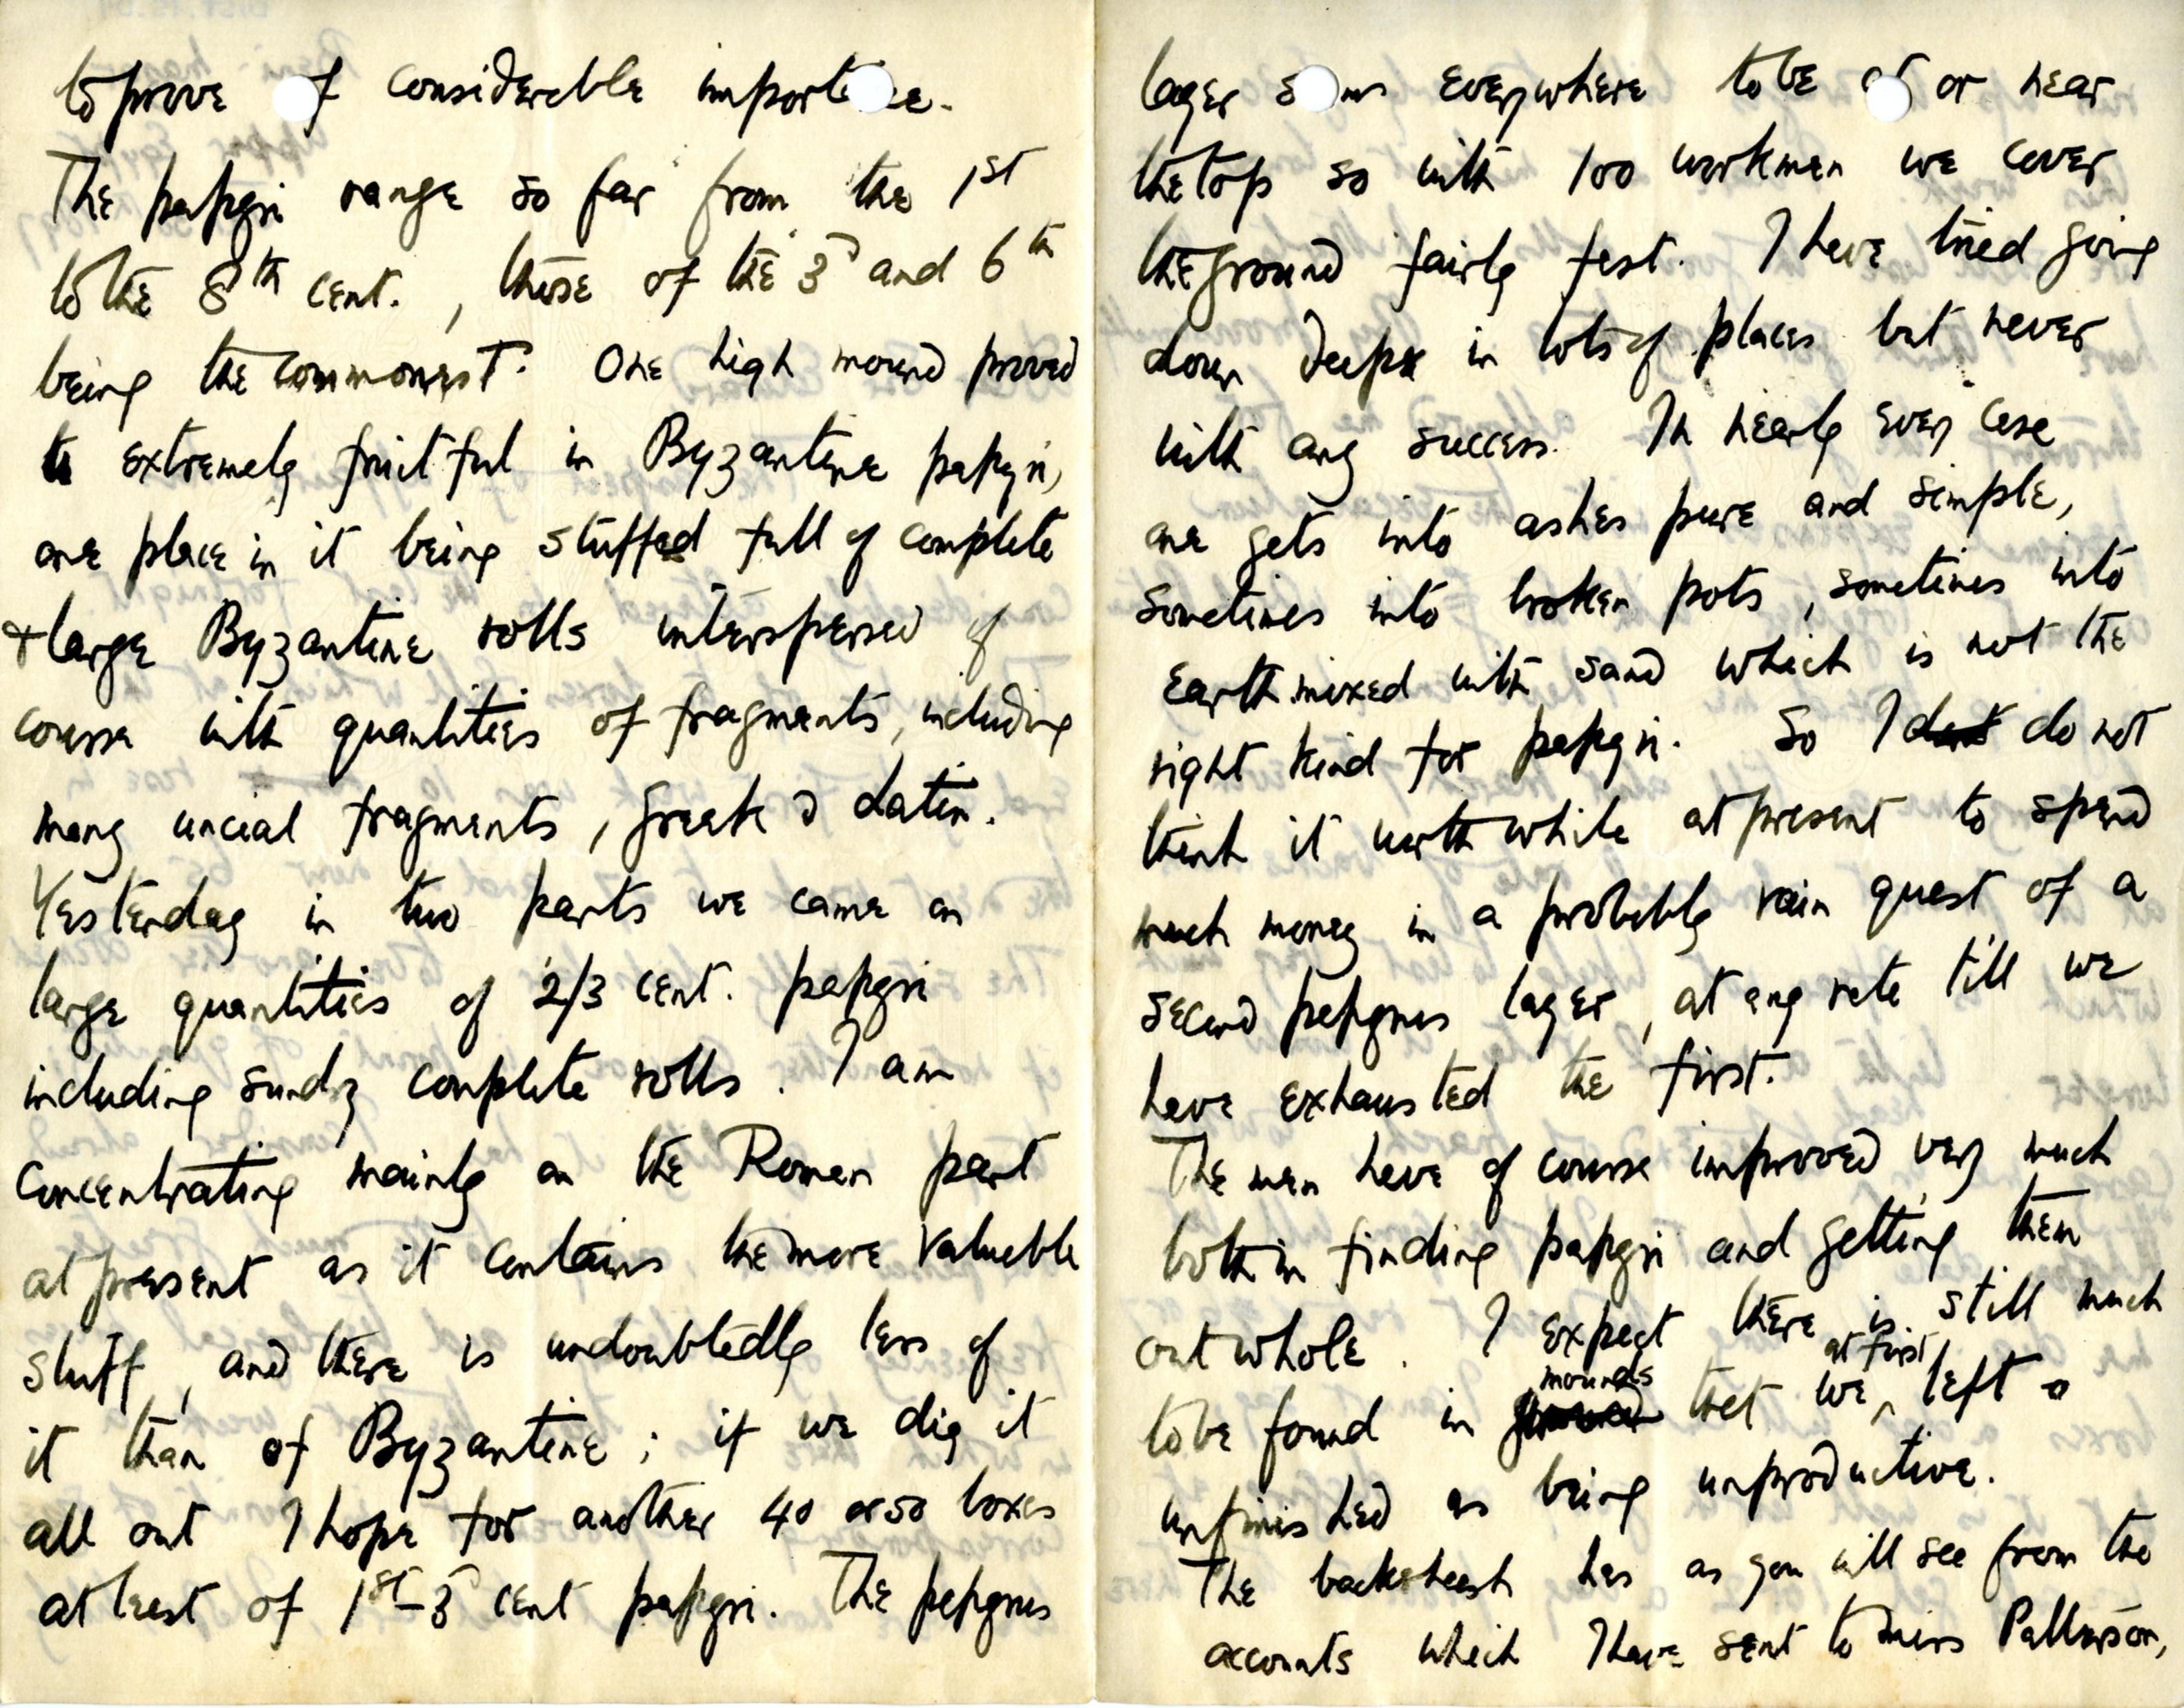 to prove of considerable importance.
The papyri range so far from the 1st
to the 8th cent., those of the 3d and 6th
being the commonest. One high mound proved
to extremely fruitful in Byzantine papyri,
one place in it being stuffed full of complete
& large Byzantine rolls interspersed of
course with quantities of fragments, including
many uncial fragments, Greek & Latin.
Yesterday in two parts we came on
large quantities of 2/3 cent. papyri
including sundry complete rolls. I am
concentrating mainly on the Roman part
at present as it contains the more valuable
stuff, and there is undoubtedly less of
it than of Byzantine; if we dig it
all out I hope for another 40 or 50 boxes
at least of 1st-3d cent papyri. The papyrus
layer seems everywhere to be at or near
the top so with 100 workmen we cover
the ground fairly fast. I have tried going
down deep in lots of places but never
with any success. In nearly every case
one gets into ashes pure and simple,
sometimes into broken pots, sometimes into
earth mixed with sand which is not the
right kind for papyri. So I dont do not
think it worth while at present to spend
much money in a probably vain quest of a
second papyrus layer, at any rate till we
have exhausted the first.
The men have of course improved very much
both in finding papyri and getting them
out whole. I expect there is still much
to be found in mounds that we at first left
unfinished as being unproductive.
The backsheesh has as you will see from the
accounts which I have sent to Miss Patterson,